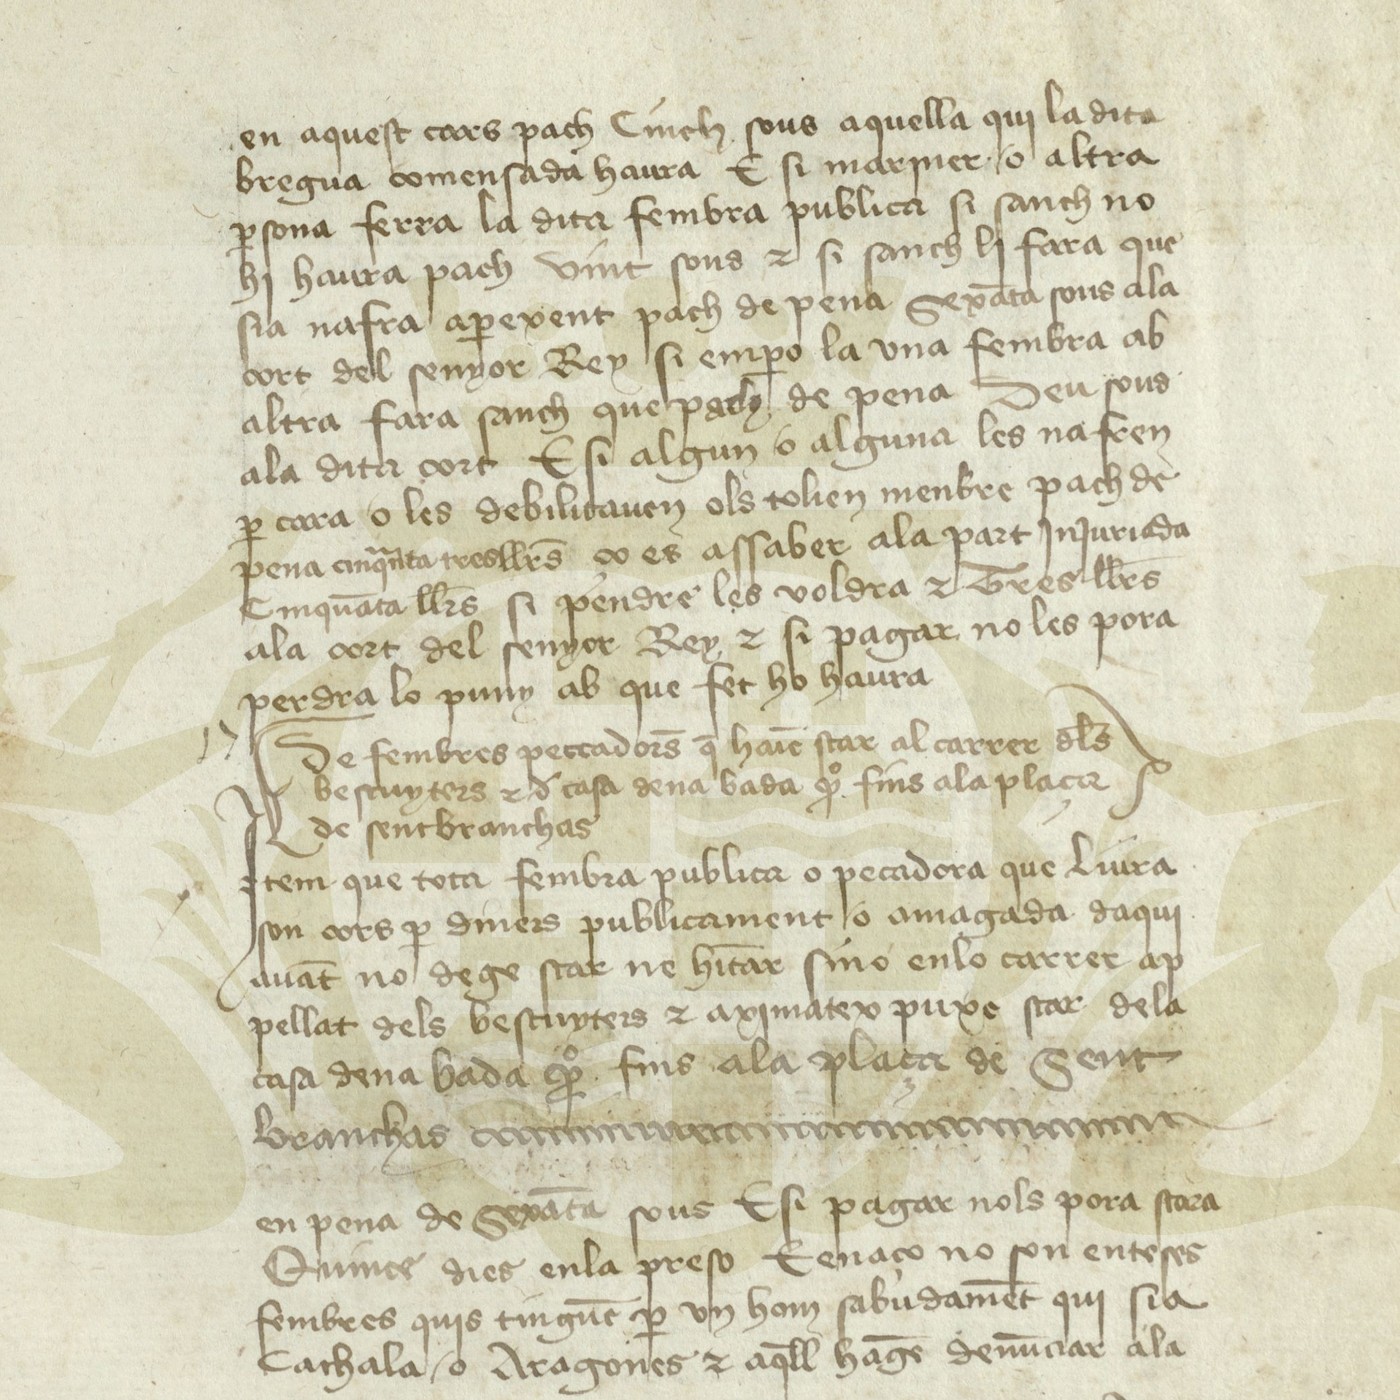 en aquest cars pach Cinch sous aquella qui la dita
bregua comensada haura E si mariner o altra
psona ferra la dita fembra publica si sanch no
hi haura pach vint sous ⁊ si sanch li fara que
sia nafra apexent pach de pena Sexãta sous ala
cort del senyor Rey si empo la vna fembra ab
altra fara sanch que pach de pena Deu sous
ala dita cort E si algun o alguna les nafren
p cara o les debilitauen ols tolien menbre pach de
pena cinquãta tres llrs̃ co es assaber ala part Injuriada
Cinquãta llrs̃ si pendre les voldra ⁊ Tres llrs̃
ala cort del senyor Rey ⁊ si pagar no les pora
perdra lo puny ab que fet ho haura
De fembres peccadors̃ q̃ haiẽ star al carrer dls̃
bescuyters ⁊ d casa dena bada fins ala plaça
de sent branchas
Item que tota fembra publica o pecadora que liura
son cors p diners publicament o amagada daqui
auãt no dege star ne hitar sino enlo carrer ap
pellat dels bescuyters ⁊ aximatex puxe star dela
casa dena bada fins ala plaça de Sent
branchas
en pena de Sexãta sous E si pagar nols pora stara
Quinze dies enla preso E en aço no son enteses
fembres quis tingũe p vn hom sabudamẽt qui sia
Cathala o Aragones ⁊ aqll hagẽ denũciar ala